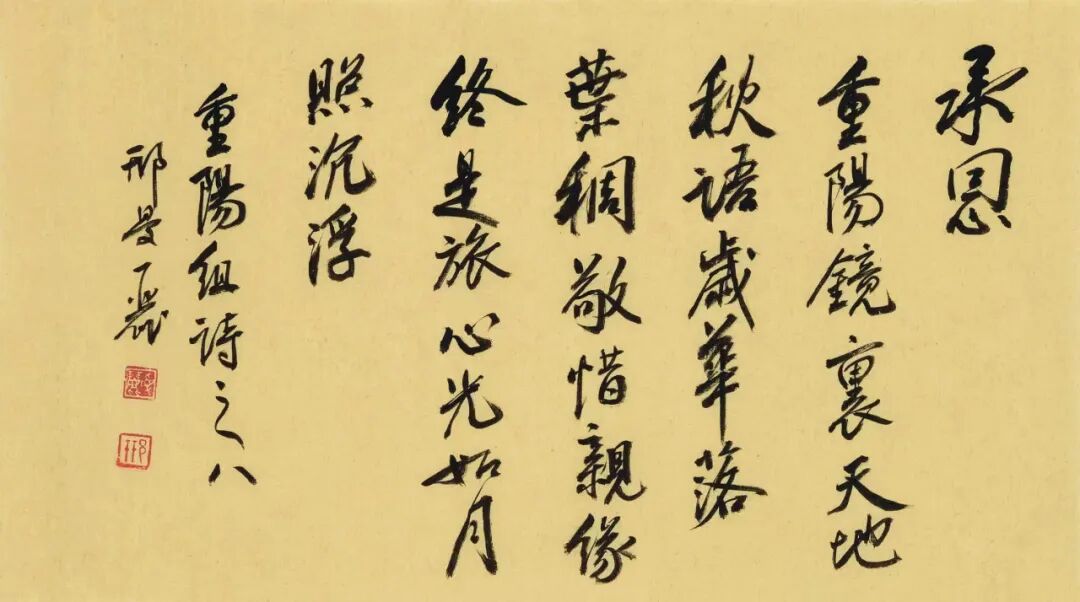 承恩
重陽鏡裏天地
秋語歲華落
葉稠敬惜親緣
終是旅心光如月
照沉浮
重陽組詩之八
邢